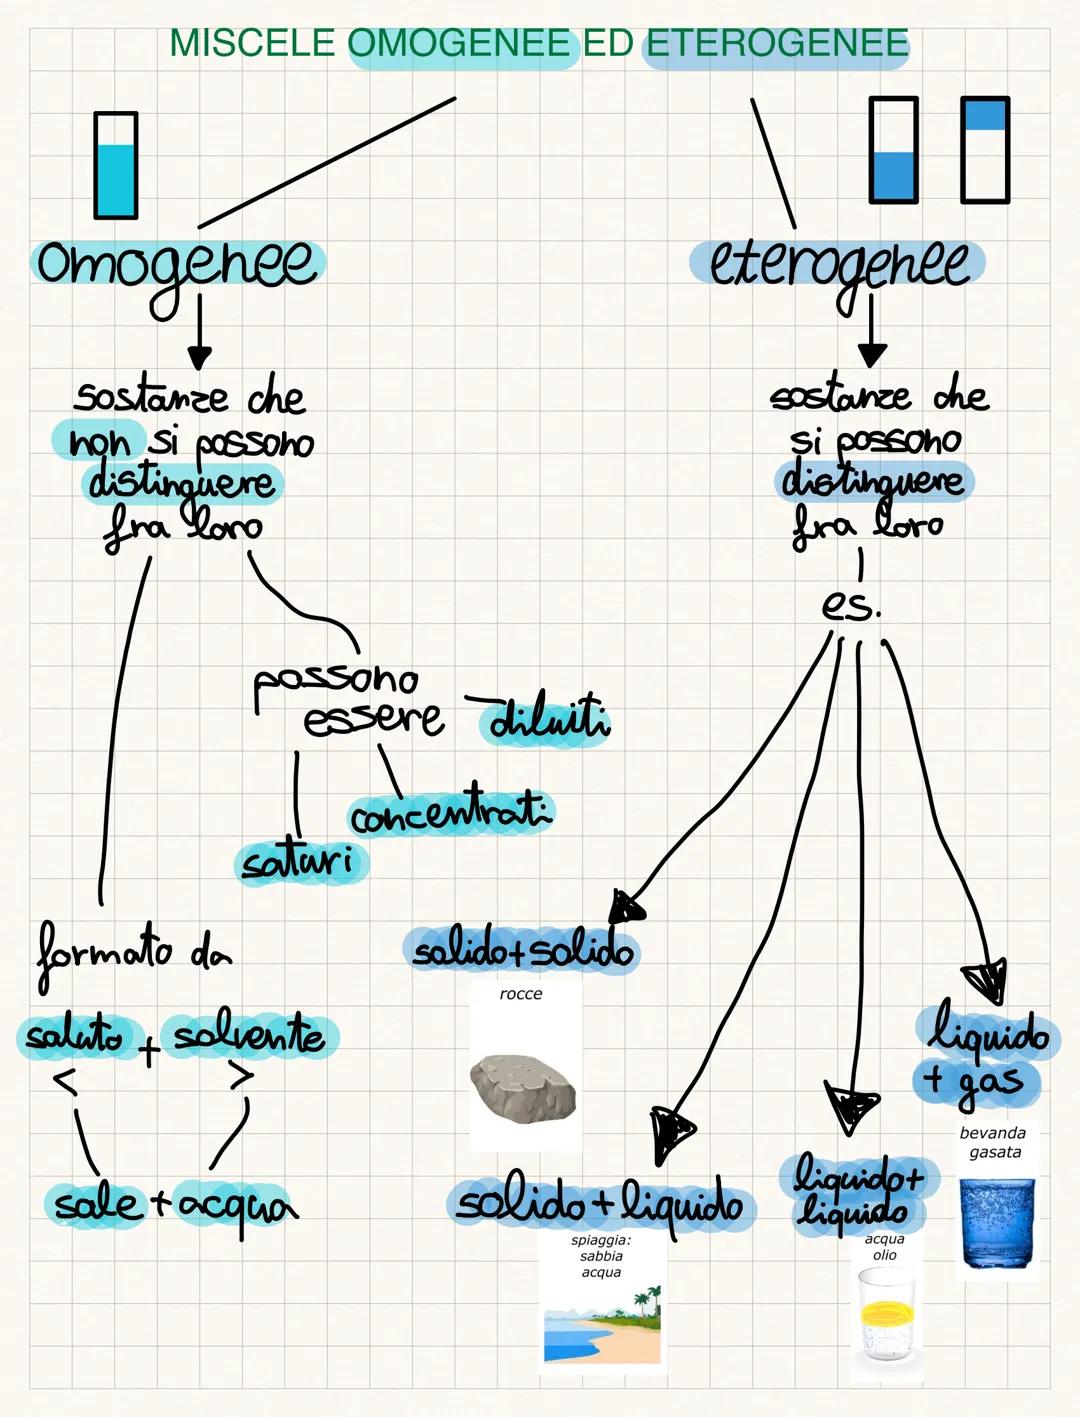 MISCELE OMOGENEE ED ETEROGENEE
omogenee
sostanze che
non si possono
distinguere
fra loro
possono
essere
diluiti
concentrati
saturi
formato da
soluto + solvente
< >
sale + acqua
eterogenee
sostanze che
si possono
distinguere
fra loro
es.
solido+solido
rocce
solido+liquido
spiaggia:
sabbia
acqua
liquido+
liquido
acqua
olio
liquido
+ gas
bevanda
gasata